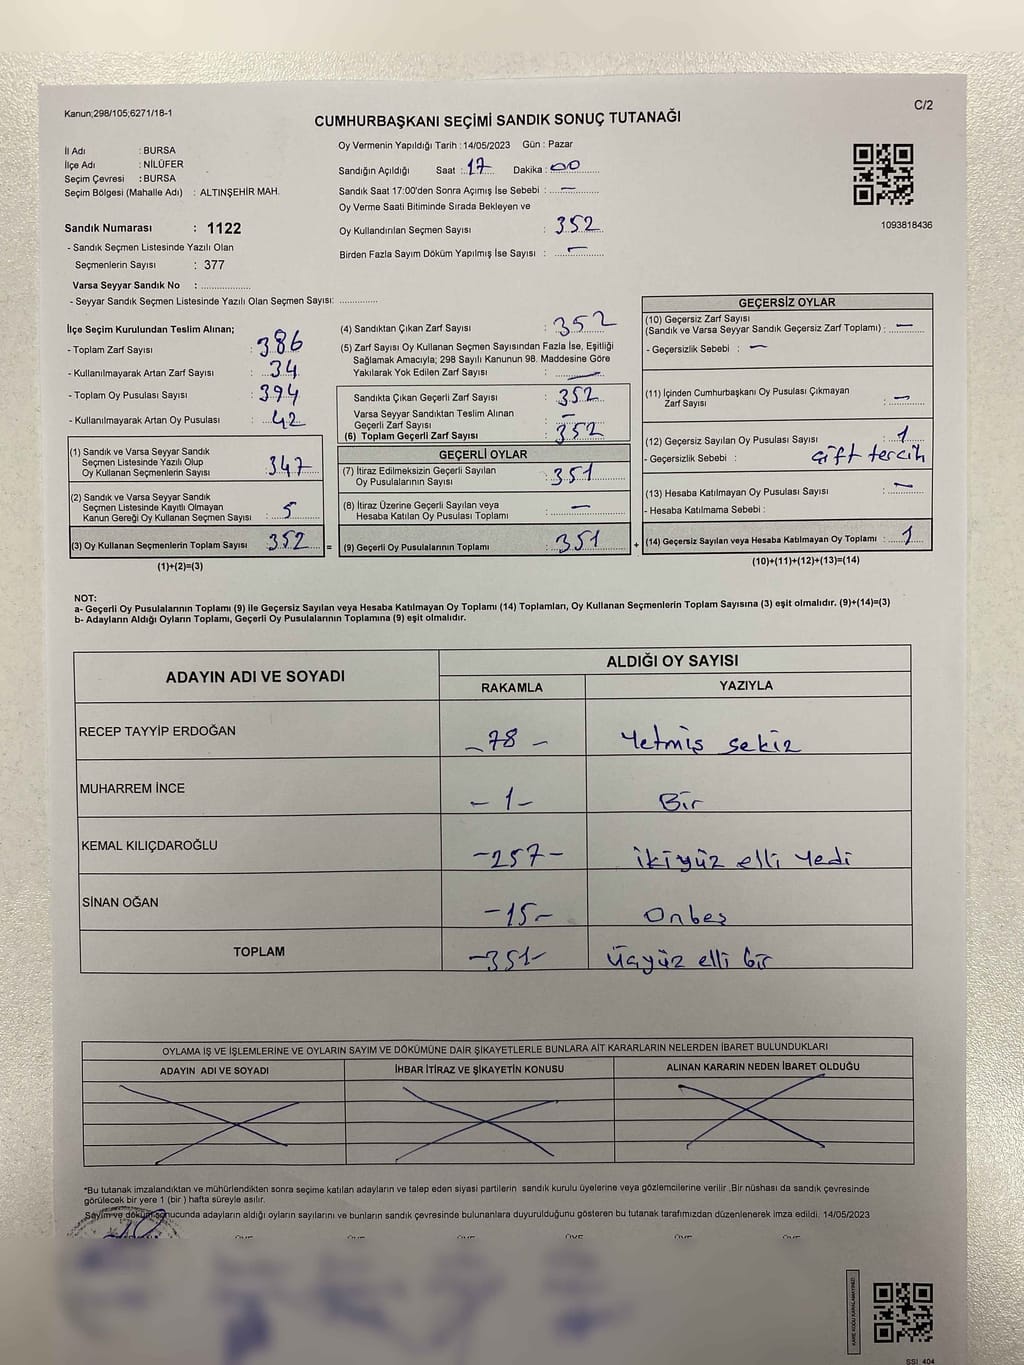 Kanun;298/105;6271/18-1
C/2
CUMHURBAŞKANI SEÇİMİ SANDIK SONUÇ TUTANAĞI
İl Adı : BURSA
İlçe Adı : NİLÜFER
Seçim Çevresi : BURSA
Seçim Bölgesi (Mahalle Adı) : ALTINŞEHİR MAH.
Sandık Numarası : 1122
- Sandık Seçmen Listesinde Yazılı Olan
Seçmenlerin Sayısı : 377
Varsa Seyyar Sandık No : ..................
- Seyyar Sandık Seçmen Listesinde Yazılı Olan Seçmen Sayısı: ..............
Oy Vermenin Yapıldığı Tarih : 14/05/2023 Gün : Pazar
Sandığın Açıldığı Saat : 17 Dakika : 00
Sandık Saat 17:00'den Sonra Açımış İse Sebebi : —
Oy Verme Saati Bitiminde Sırada Bekleyen ve
Oy Kullandırılan Seçmen Sayısı : 352
Birden Fazla Sayım Döküm Yapılmış İse Sayısı : —
1093818436
İlçe Seçim Kurulundan Teslim Alınan;
- Toplam Zarf Sayısı : 386
- Kullanılmayarak Artan Zarf Sayısı : 34
- Toplam Oy Pusulası Sayısı : 394
- Kullanılmayarak Artan Oy Pusulası : 42
(1) Sandık ve Varsa Seyyar Sandık
Seçmen Listesinde Yazılı Olup
Oy Kullanan Seçmenlerin Sayısı : 347
(2) Sandık ve Varsa Seyyar Sandık
Seçmen Listesinde Kayıtlı Olmayan
Kanun Gereği Oy Kullanan Seçmen Sayısı : 5
(3) Oy Kullanan Seçmenlerin Toplam Sayısı : 352 =
(1)+(2)=(3)
(4) Sandıktan Çıkan Zarf Sayısı : 352
(5) Zarf Sayısı Oy Kullanan Seçmen Sayısından Fazla İse, Eşitliği
Sağlamak Amacıyla; 298 Sayılı Kanunun 98. Maddesine Göre
Yakılarak Yok Edilen Zarf Sayısı : —
Sandıkta Çıkan Geçerli Zarf Sayısı : 352
Varsa Seyyar Sandıktan Teslim Alınan
Geçerli Zarf Sayısı : —
(6) Toplam Geçerli Zarf Sayısı : 352
GEÇERLİ OYLAR
(7) İtiraz Edilmeksizin Geçerli Sayılan
Oy Pusulalarının Sayısı : 351
(8) İtiraz Üzerine Geçerli Sayılan veya
Hesaba Katılan Oy Pusulası Toplamı : —
(9) Geçerli Oy Pusulalarının Toplamı : 351 +
GEÇERSİZ OYLAR
(10) Geçersiz Zarf Sayısı
(Sandık ve Varsa Seyyar Sandık Geçersiz Zarf Toplamı) : —
- Geçersizlik Sebebi : —
(11) İçinden Cumhurbaşkanı Oy Pusulası Çıkmayan
Zarf Sayısı : —
(12) Geçersiz Sayılan Oy Pusulası Sayısı : 1
- Geçersizlik Sebebi : çift tercih
(13) Hesaba Katılmayan Oy Pusulası Sayısı : —
- Hesaba Katılmama Sebebi :
(14) Geçersiz Sayılan veya Hesaba Katılmayan Oy Toplamı : 1
(10)+(11)+(12)+(13)=(14)
NOT:
a- Geçerli Oy Pusulalarının Toplamı (9) ile Geçersiz Sayılan veya Hesaba Katılmayan Oy Toplamı (14) Toplamları, Oy Kullanan Seçmenlerin Toplam Sayısına (3) eşit olmalıdır. (9)+(14)=(3)
b- Adayların Aldığı Oyların Toplamı, Geçerli Oy Pusulalarının Toplamına (9) eşit olmalıdır.
ADAYIN ADI VE SOYADI
ALDIĞI OY SAYISI
RAKAMLA YAZIYLA
RECEP TAYYİP ERDOĞAN -78- Yetmiş sekiz
MUHARREM İNCE -1- Bir
KEMAL KILIÇDAROĞLU -257- ikiyüz elli yedi
SİNAN OĞAN -15- Onbeş
TOPLAM -351- Üçyüz elli bir
OYLAMA İŞ VE İŞLEMLERİNE VE OYLARIN SAYIM VE DÖKÜMÜNE DAİR ŞİKAYETLERLE BUNLARA AİT KARARLARIN NELERDEN İBARET BULUNDUKLARI
ADAYIN ADI VE SOYADI İHBAR İTİRAZ VE ŞİKAYETİN KONUSU ALINAN KARARIN NEDEN İBARET OLDUĞU
*Bu tutanak imzalandıktan ve mühürlendikten sonra seçime katılan adayların ve talep eden siyasi partilerin sandık kurulu üyelerine veya gözlemcilerine verilir .Bir nüshası da sandık çevresinde
görülecek bir yere 1 (bir ) hafta süreyle asılır.
Sayım ve döküm sonucunda adayların aldığı oyların sayılarını ve bunların sandık çevresinde bulunanlara duyurulduğunu gösteren bu tutanak tarafımızdan düzenlenerek imza edildi. 14/05/2023
SSI 404